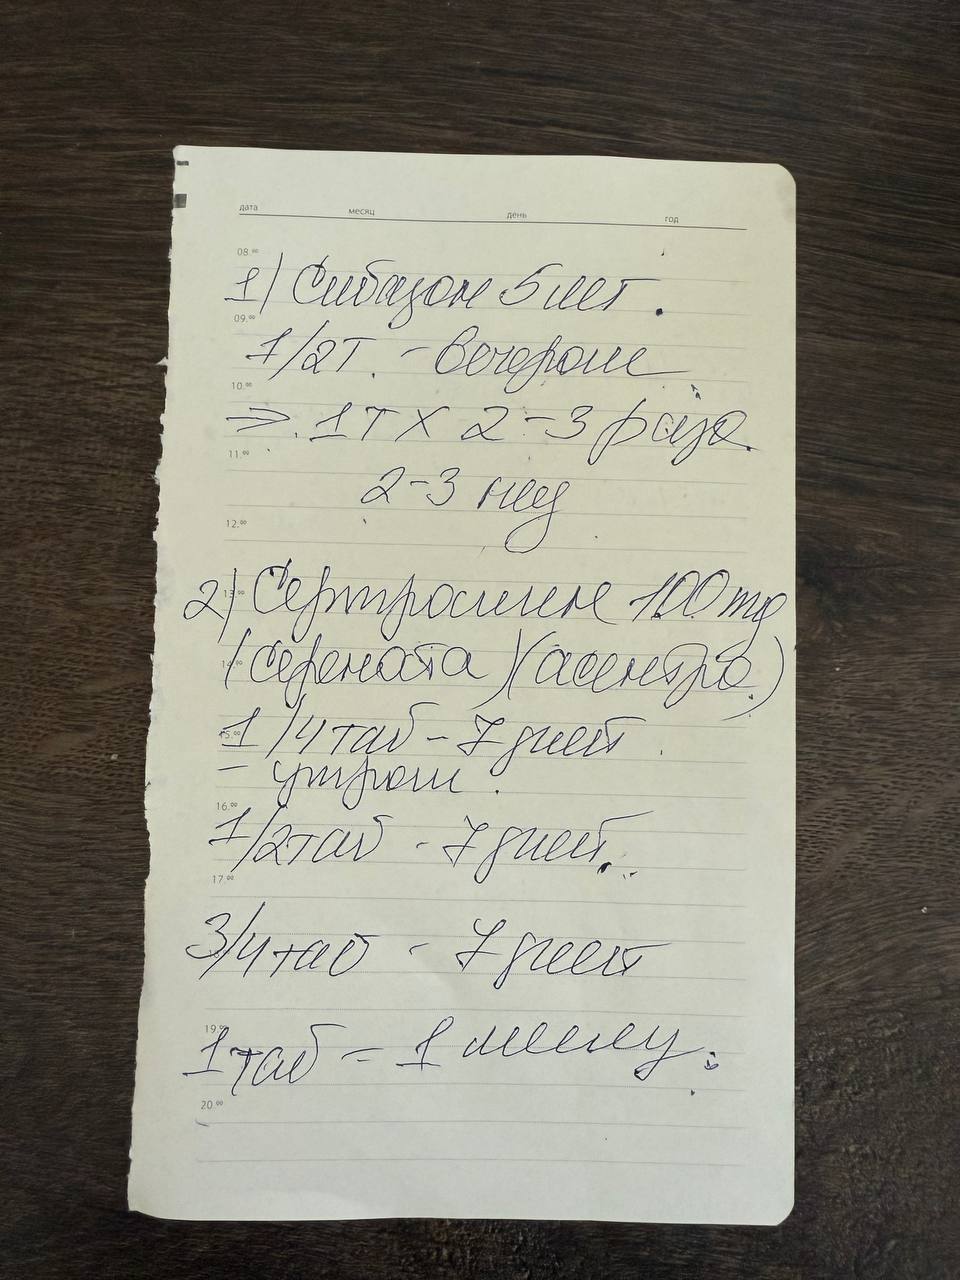 дата месяц день год
08.00
1) Сибазон 5 мг.
09.00
1/2 т. - вечером
10.00
⇒ 1 т х 2-3 раза
11.00
2-3 нед
12.00
13.00
2) Сертралин 100 mg
14.00
(Серената) (асентра)
15.00
1/4 таб - 7 дней
- утром.
16.00
1/2 таб - 7 дней.
17.00
3/4 таб - 7 дней
19.00
1 таб - 1
20.00